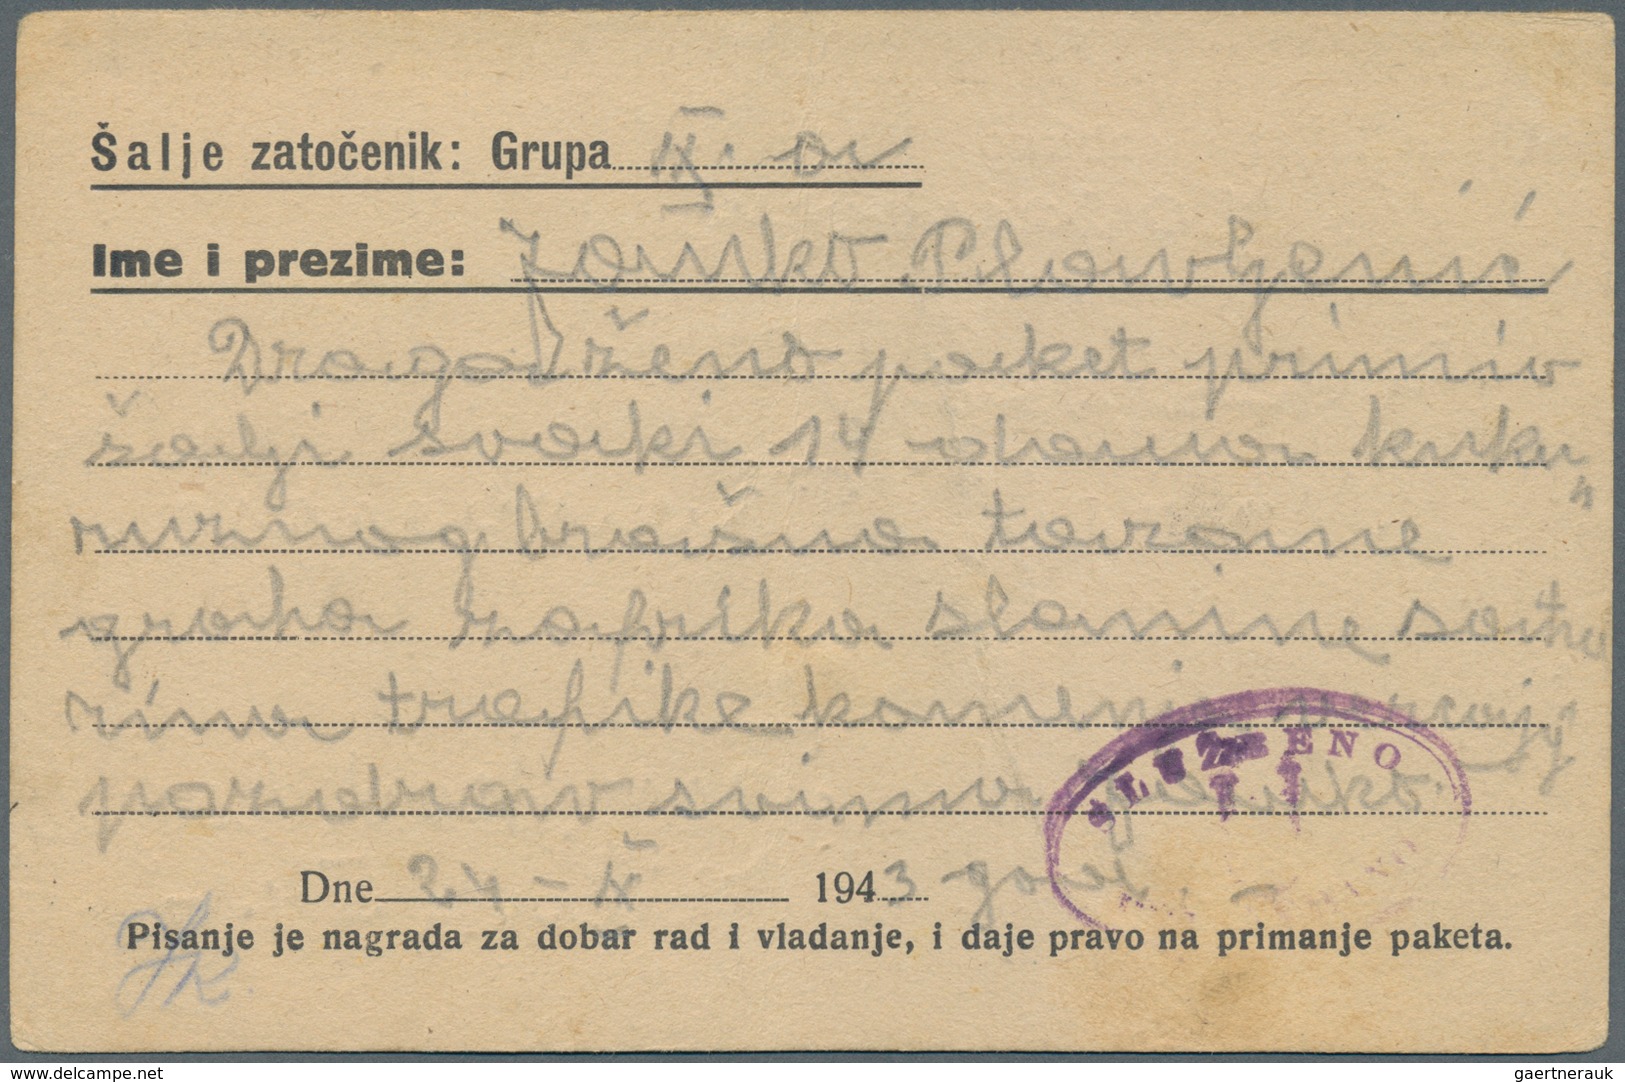 Šalje zatočenik: Grupa IX. a
Ime i prezime: Joško Plavljanić
Draga ženo paket primio
šalji svaki 14 dana kuku„
ruznog brašna tarane
graha zafrika slanine saha
rina trafike
pozdrav svima Joško.
Dne 24 - IX 1943 god.
Pisanje je nagrada za dobar rad i vladanje, i daje pravo na primanje paketa.
SLUŽBENO
www.delcampe.net
gaertnerauk